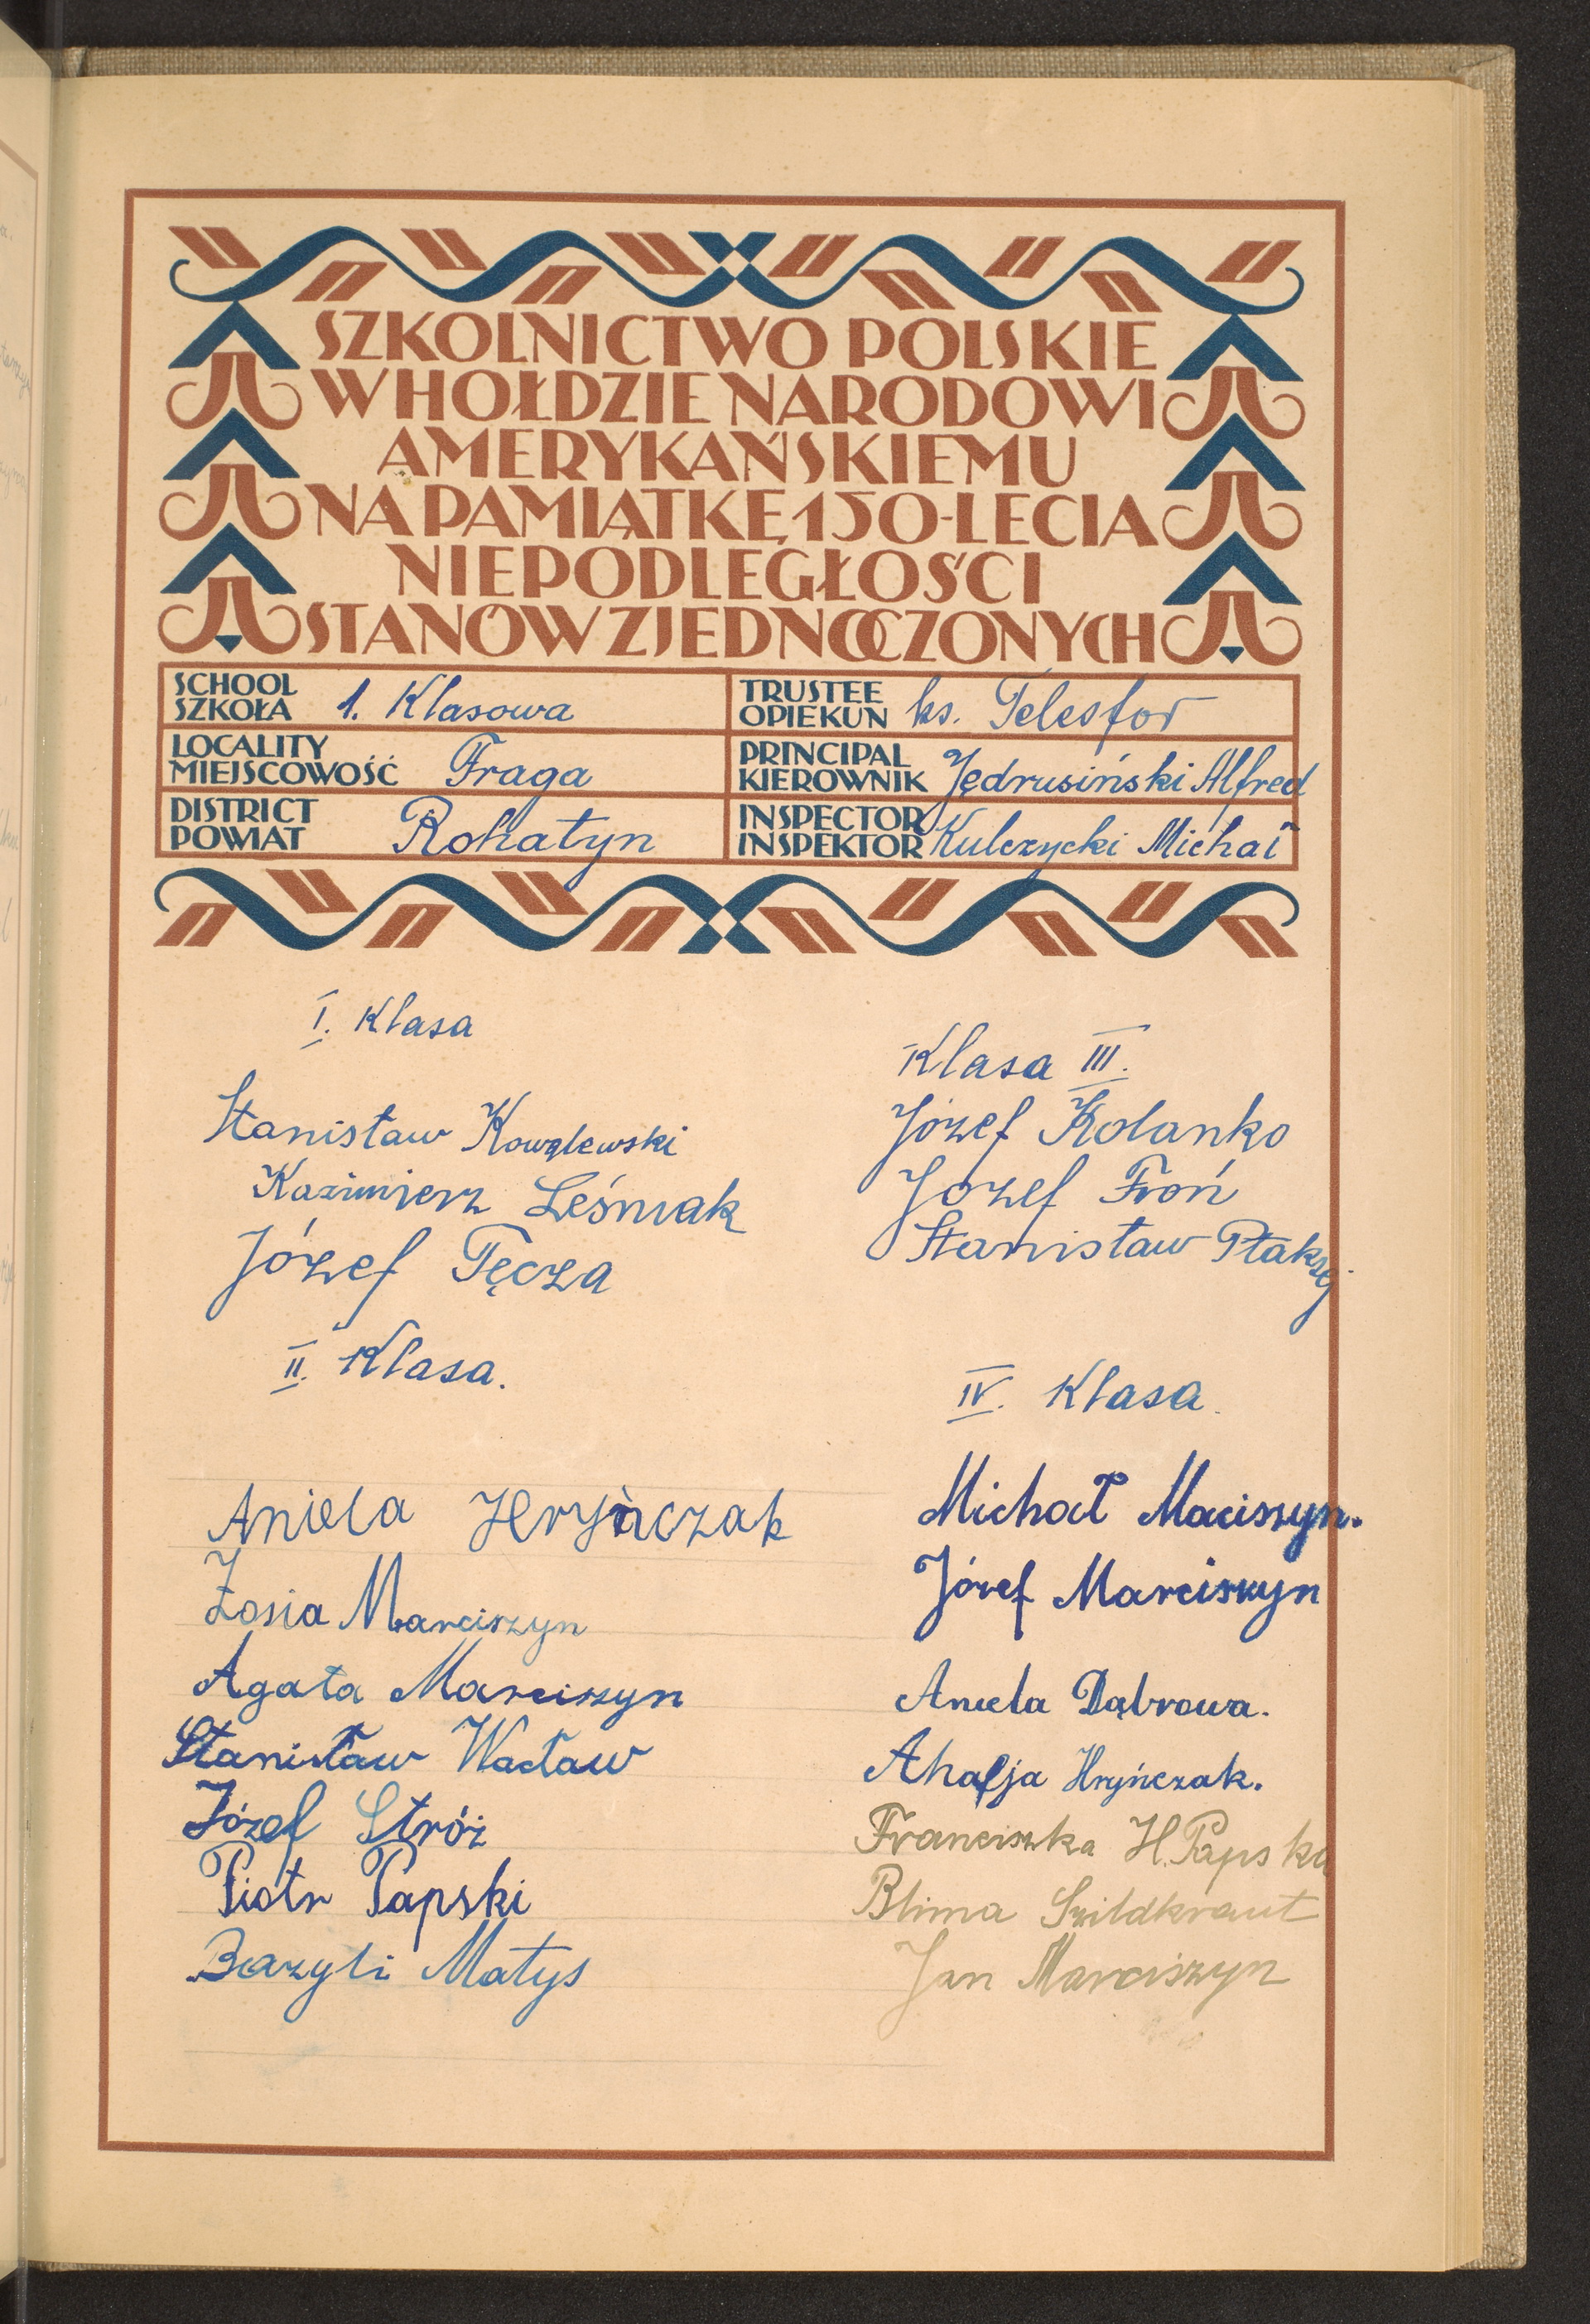 SZKOLNICTWO POLSKIE
W HOŁDZIE NARODOWI
AMERYKAŃSKIEMU
NA PAMIĄTKĘ 150-LECIA
NIEPODLEGŁOŚCI
STANÓW ZJEDNOCZONYCH
SCHOOL
SZKOŁA 1. Klasowa
LOCALITY
MIEJSCOWOŚĆ Fraga
DISTRICT
POWIAT Rohatyn
TRUSTEE
OPIEKUN ks. Telesfor
PRINCIPAL
KIEROWNIK Jędrusiński Alfred
INSPECTOR
INSPEKTOR Kulczycki Michał
I. Klasa
Stanisław Kowalewski
Kazimierz Leśniak
Józef Tęcza
II. Klasa.
Aniela Hryńczak
Zosia Marciszyn
Agata Marciszyn
Stanisław Wacław
Józef Stróż
Piotr Papski
Bazyli Matys
Klasa III.
Józef Kolanko
Józef Froń
Stanisław
IV. Klasa.
Michał Maciszyn.
Józef Marciszyn
Aniela Dąbrowa.
Ahafja Hryńczak.
Franciszka H. Papska
Blima Szildkraut
Jan Marciszyn